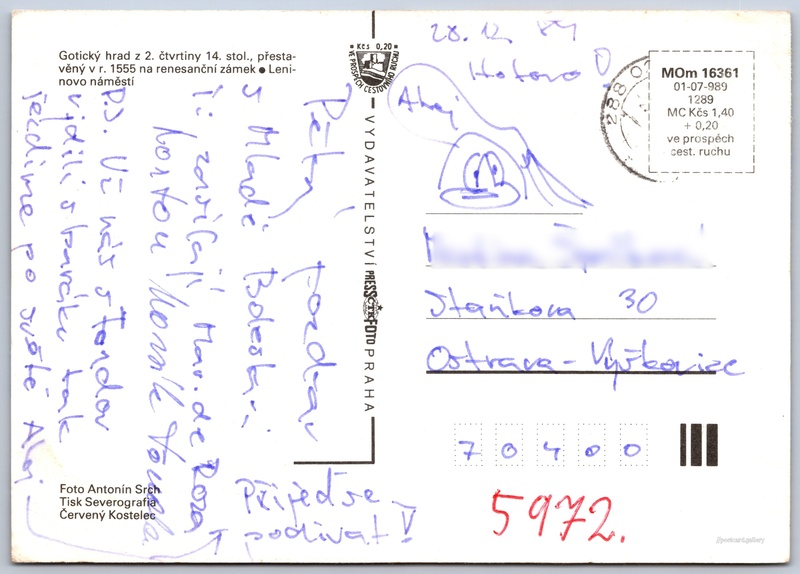 Gotický hrad z 2. čtvrtiny 14. stol., přesta-
věný v r. 1555 na renesanční zámek ● Leni-
novo náměstí
Kčs 0,20
VE PROSPĚCH CESTOVNÍHO RUCHU
VYDAVATELSTVÍ PRESSFOTO PRAHA
28. 12. 89
Hotovo
Ahoj
288 0
MOm 16361
01-07-989
1289
MC Kčs 1,40
+ 0,20
ve prospěch
cest. ruchu
Staňkova 30
Ostrava - Výškovice
70400
5972.
pozdrav
s Mladé Boleslavi
Ti zasílají
P.S. Už nás s Tondou
vidili s baráku tak
jezdíme po světě Ahoj
Přijeď se
podívat!
Foto Antonín Srch
Tisk Severografia
Červený Kostelec